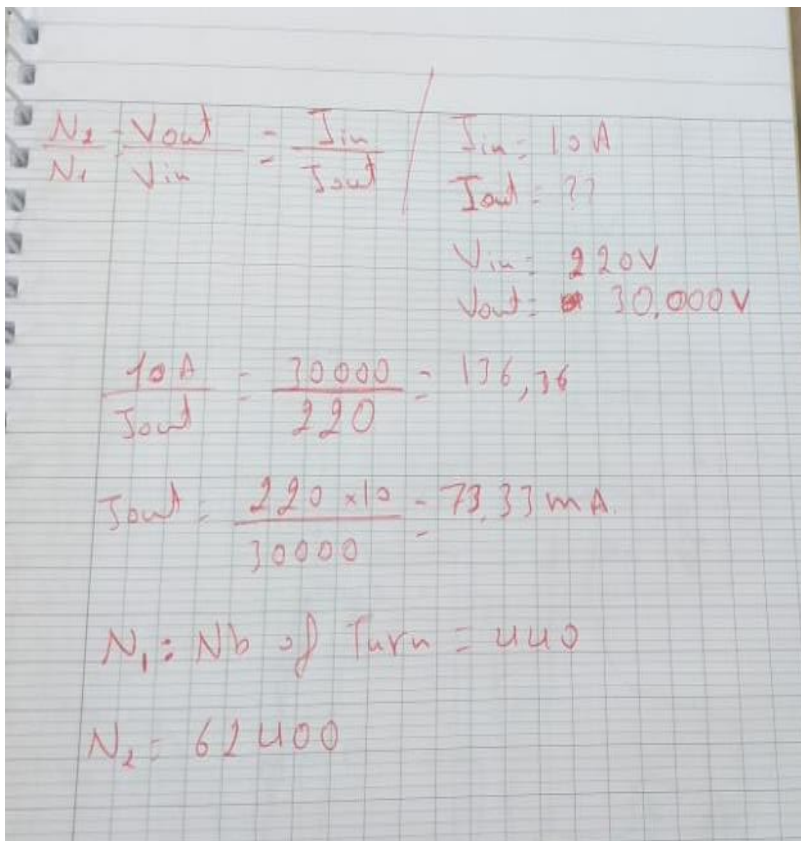 N2/N1 = Vout/Vin = Iin/Iout
Iin = 10A
Iout = ??
Vin = 220V
Vout = 30,000V
10A/Iout = 30000/220 = 136,36
Iout = 220 x 10/30000 = 73,33 mA.
N1 : Nb of Turn = 440
N2 = 62400